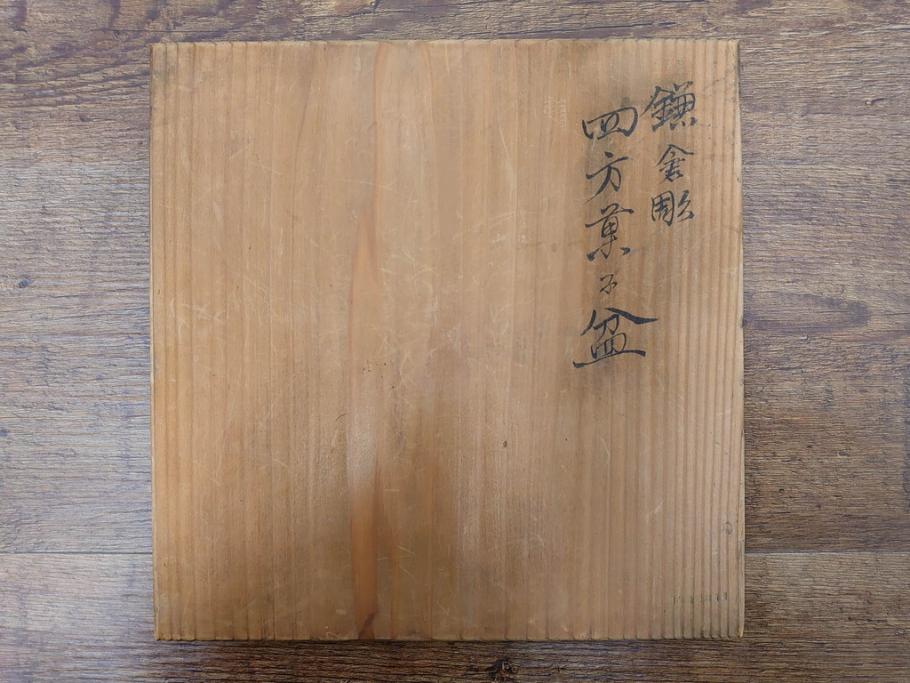 鎌倉彫
四方菓子盆